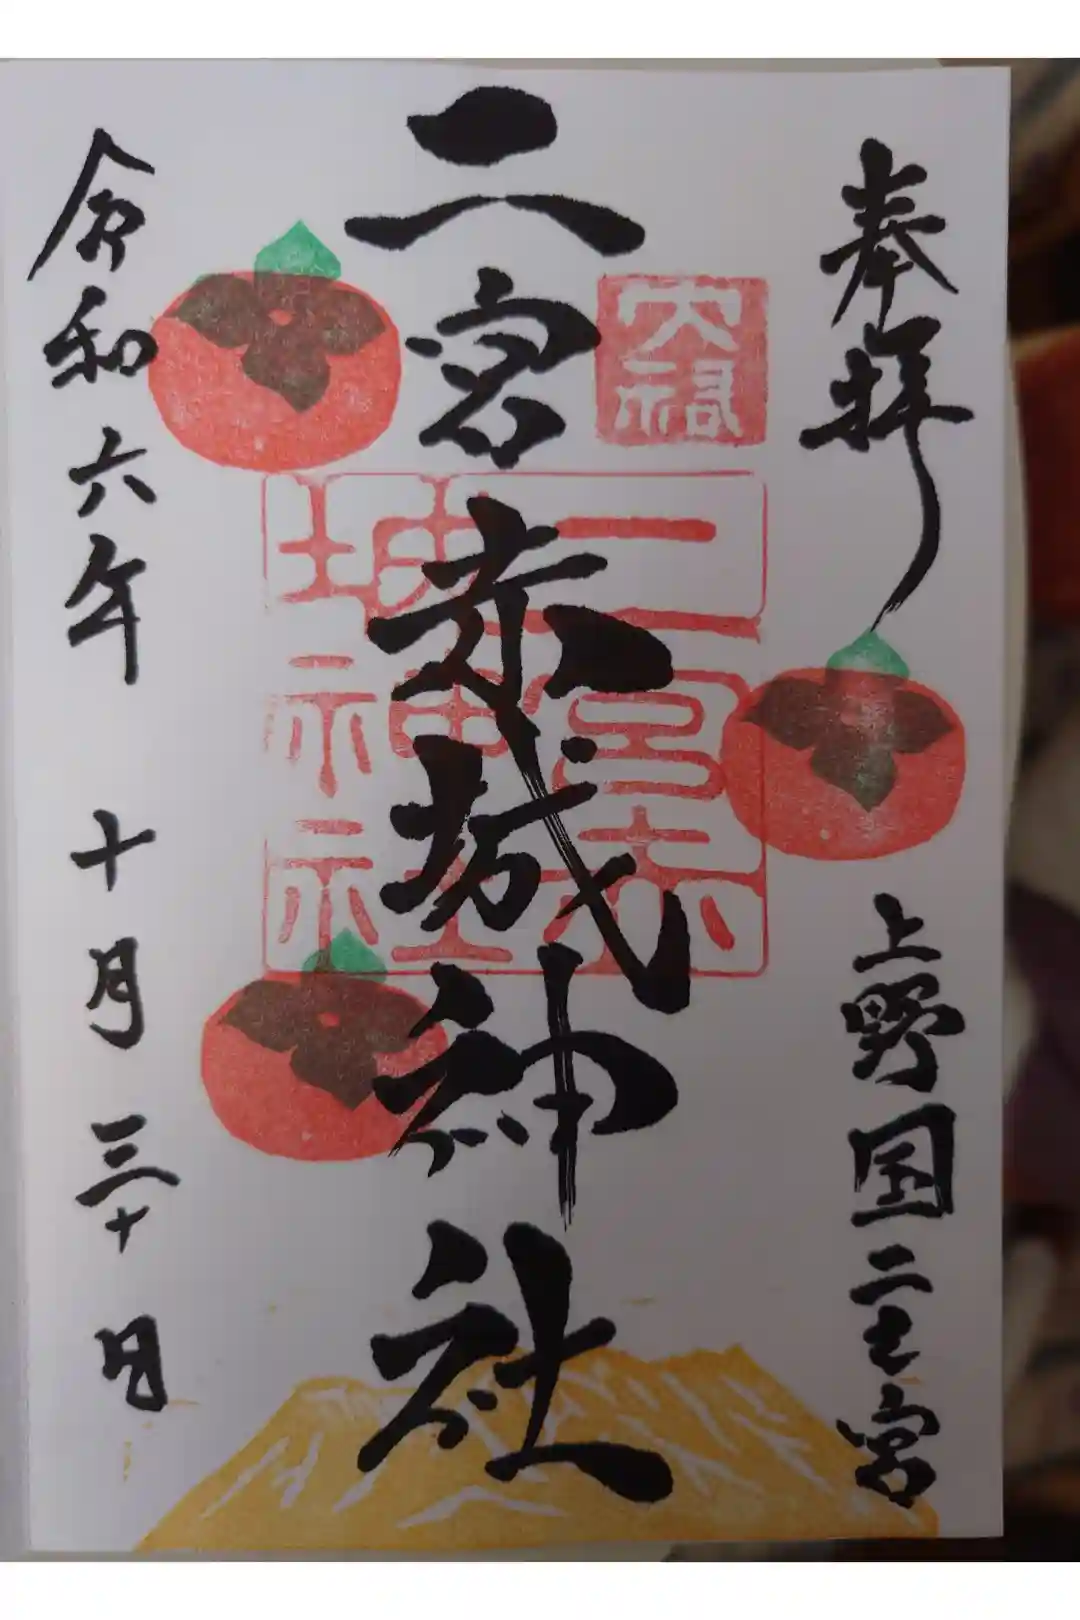 奉拝
上野国二之宮
二宮赤城神社
大福
二宮赤
城神社
令和六年 十月三十日